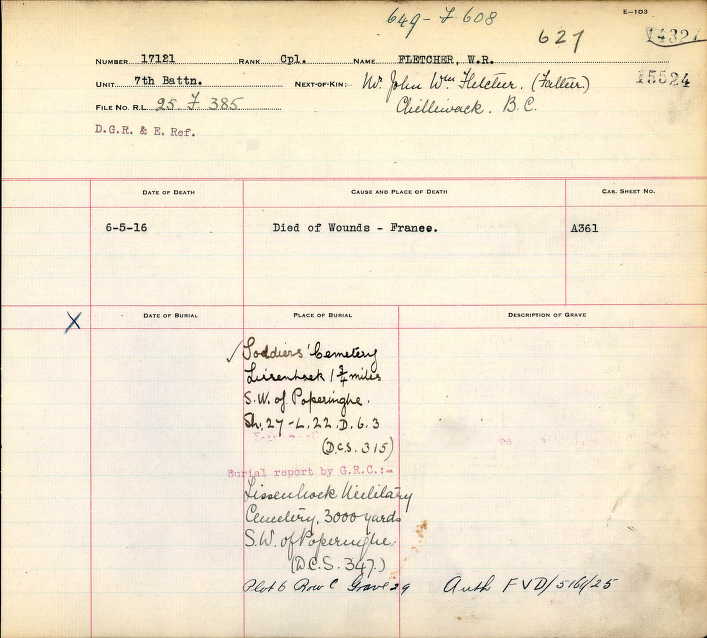 649-F 608
E-103
627
NUMBER 17121 RANK Cpl. NAME FLETCHER, W.R.
UNIT 7th Battn. NEXT-OF-KIN:- Mr John Wm Fletcher. (Father)
15524
FILE NO. R.L. 25. F. 385 Chilliwack. B.C.
D.G.R. & E. Ref.
DATE OF DEATH CAUSE AND PLACE OF DEATH CAS. SHEET NO.
6-5-16 Died of Wounds - France. A361
X DATE OF BURIAL PLACE OF BURIAL DESCRIPTION OF GRAVE
✓ Soldiers' Cemetery
Lissenhoek 1 3/4 miles
S.W. of Poperinghe.
Sh. 27-L.22.D.6.3
(D.C.S. 315)
Burial report by G.R.C.:-
Lissenhoek Military
Cemetery, 3000 yards
S.W. of Poperinghe
(D.C.S. 347.)
Plot 6 Row C Grave 29 Auth FVD/5161/25